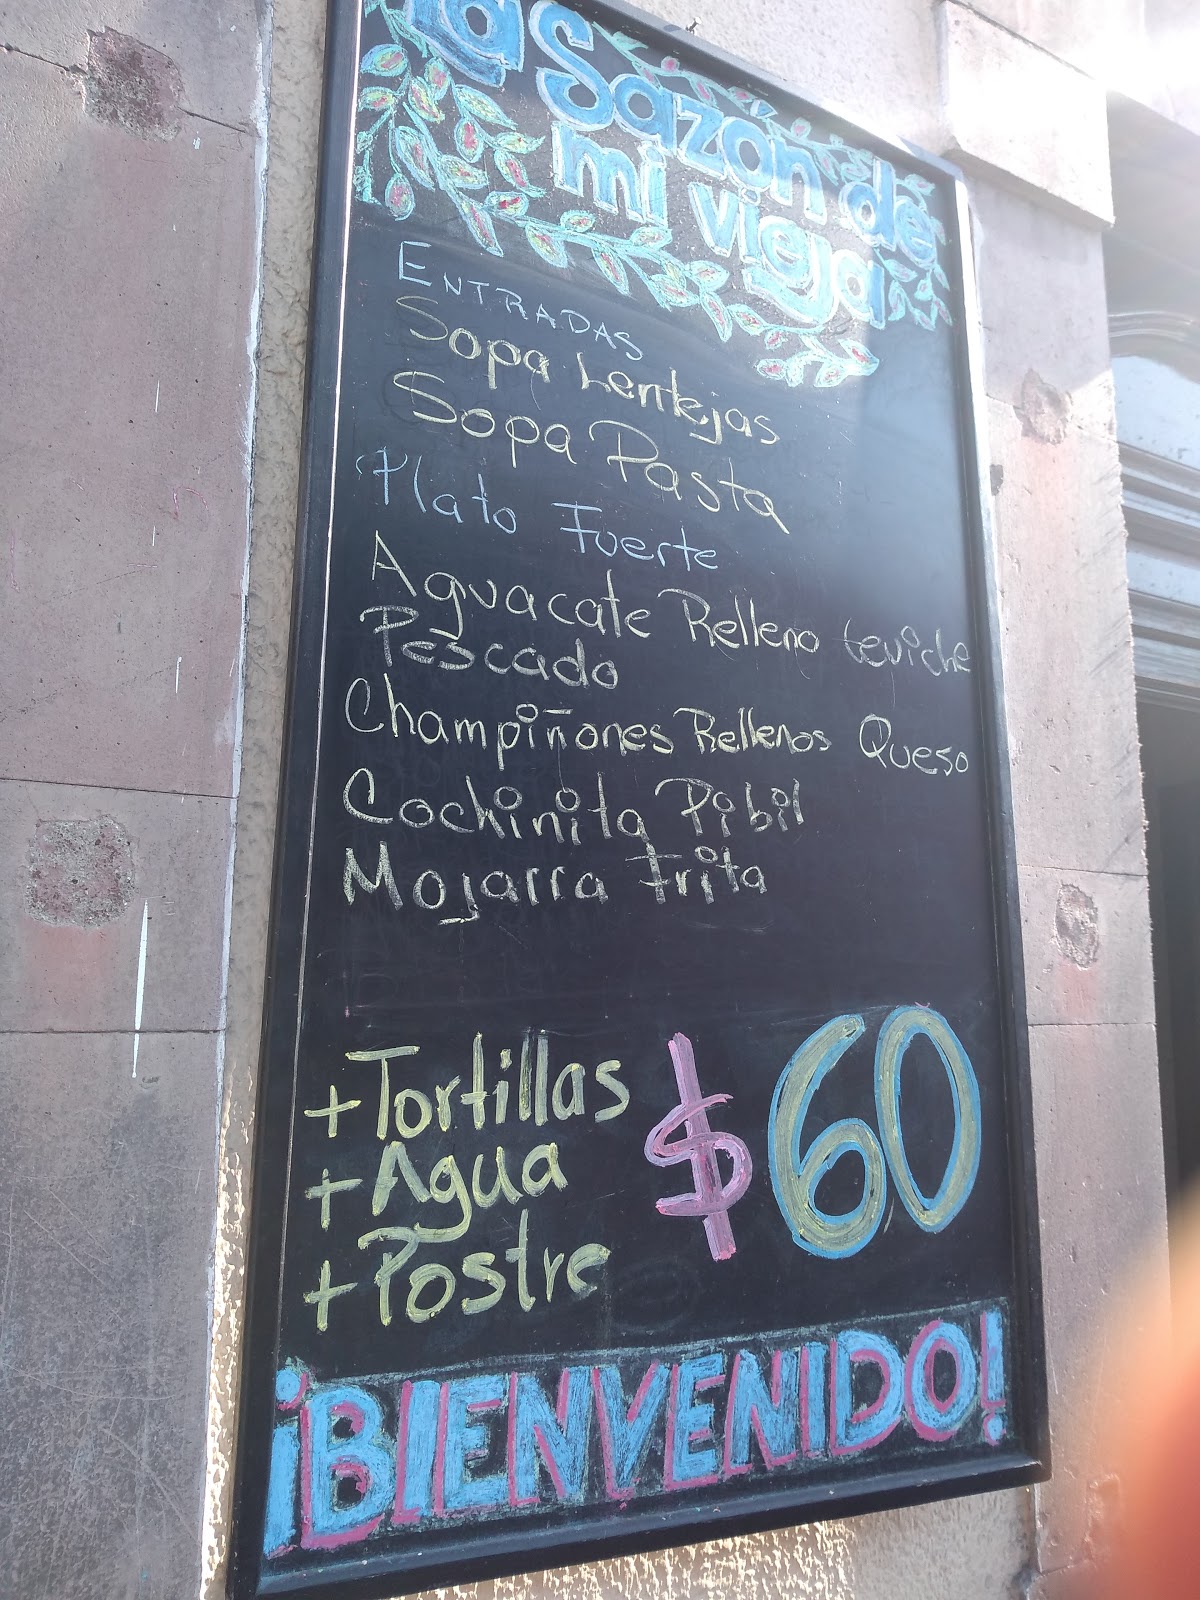 La Sazón de
mi vieja
ENTRADAS
Sopa Lentejas
Sopa Pasta
Plato Fuerte
Aguacate Relleno Ceviche
Pescado
Champiñones Rellenos Queso
Cochinita Pibil
Mojarra Frita
+Tortillas
+Agua
+Postre
$60
¡BIENVENIDO!